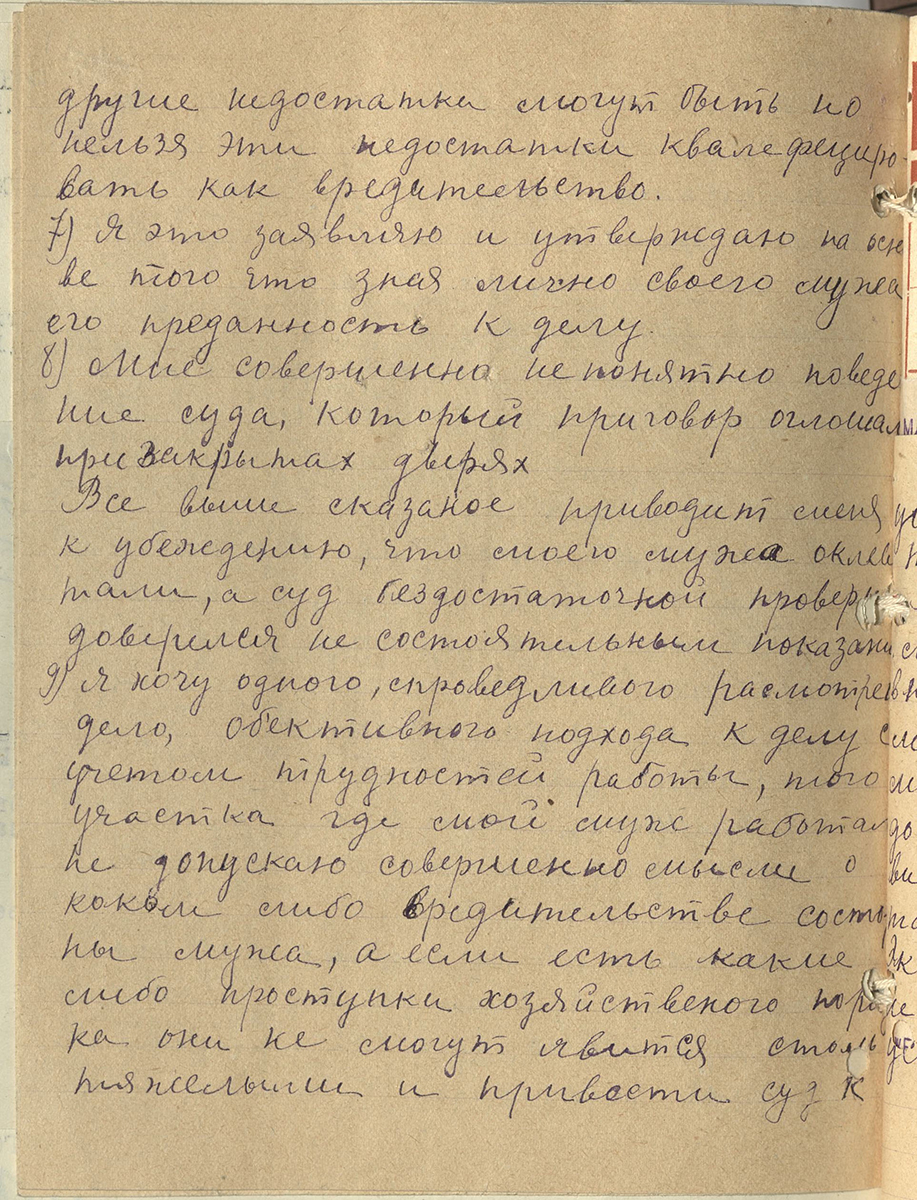 другие недостатки могут быть но
нельзя эти недостатки квалефециро-
вать как вредительство.
7) Я это заявляю и утверждаю на осн
ве того что зная лично своего мужа
его преданность к делу.
8) Мне совершенно непонятно поведе
ние суда, который приговор оглошал
при закрытах дверях
Все выше сказаное приводит меня
к убеждению, что моего мужа оклев
тали, а суд бездостаточной проверки
доверился не состоятельным показани
9) Я хочу одного, справедливого расмотрен
дело, обективного подхода к делу с
учетом трудностей работы, того
участка где мой муж работал
не допускаю совершенно мысли о
каком либо вредительстве состо
ны мужа, а если есть какие
либо проступки хозяйственого поряд
ка они не могут явится столь
тяжелыми и привести суд к